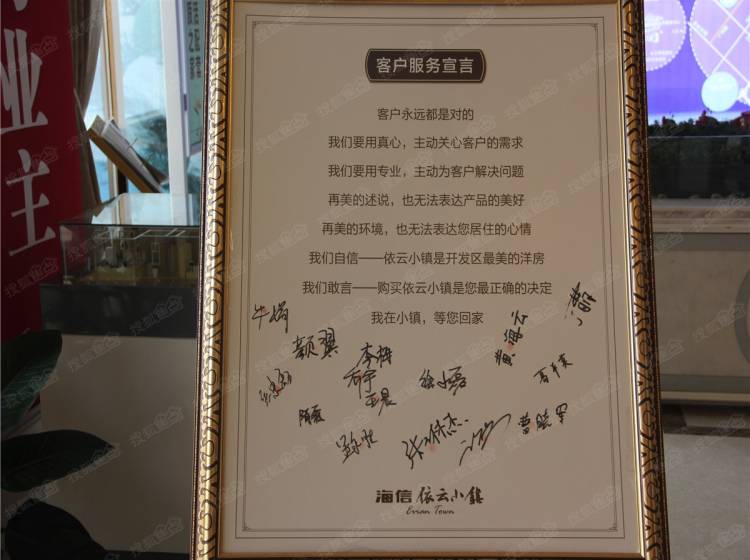 业主
客户服务宣言
客户永远都是对的
我们要用真心，主动关心客户的需求
我们要用专业，主动为客户解决问题
再美的述说，也无法表达产品的美好
再美的环境，也无法表达您居住的心情
我们自信——依云小镇是开发区最美的洋房
我们敢言——购买依云小镇是您最正确的决定
我在小镇，等您回家
颜翼
李梅
王晨
海信 依云小镇
Evian Town